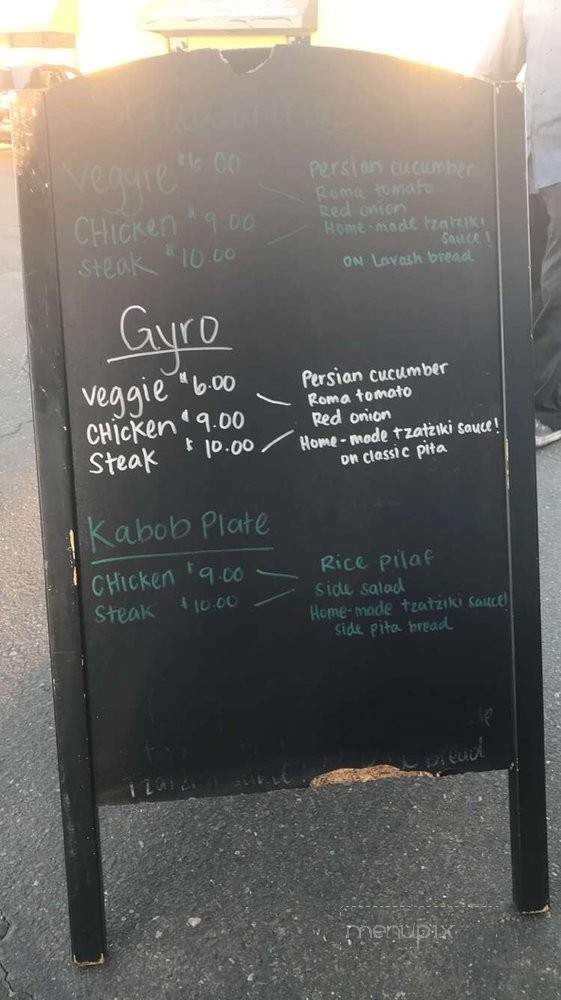 veggie $6.00
Chicken $9.00
Steak $10.00
Persian cucumber
Roma tomato
Red onion
Home-made tzatziki
sauce!
on Lavash bread
Gyro
veggie $6.00
Chicken $9.00
Steak $10.00
Persian cucumber
Roma tomato
Red onion
Home-made tzatziki sauce!
on classic pita
Kabob Plate
Chicken $9.00
Steak $10.00
Rice pilaf
side salad
Home-made tzatziki sauce!
side pita bread
bread
menupix